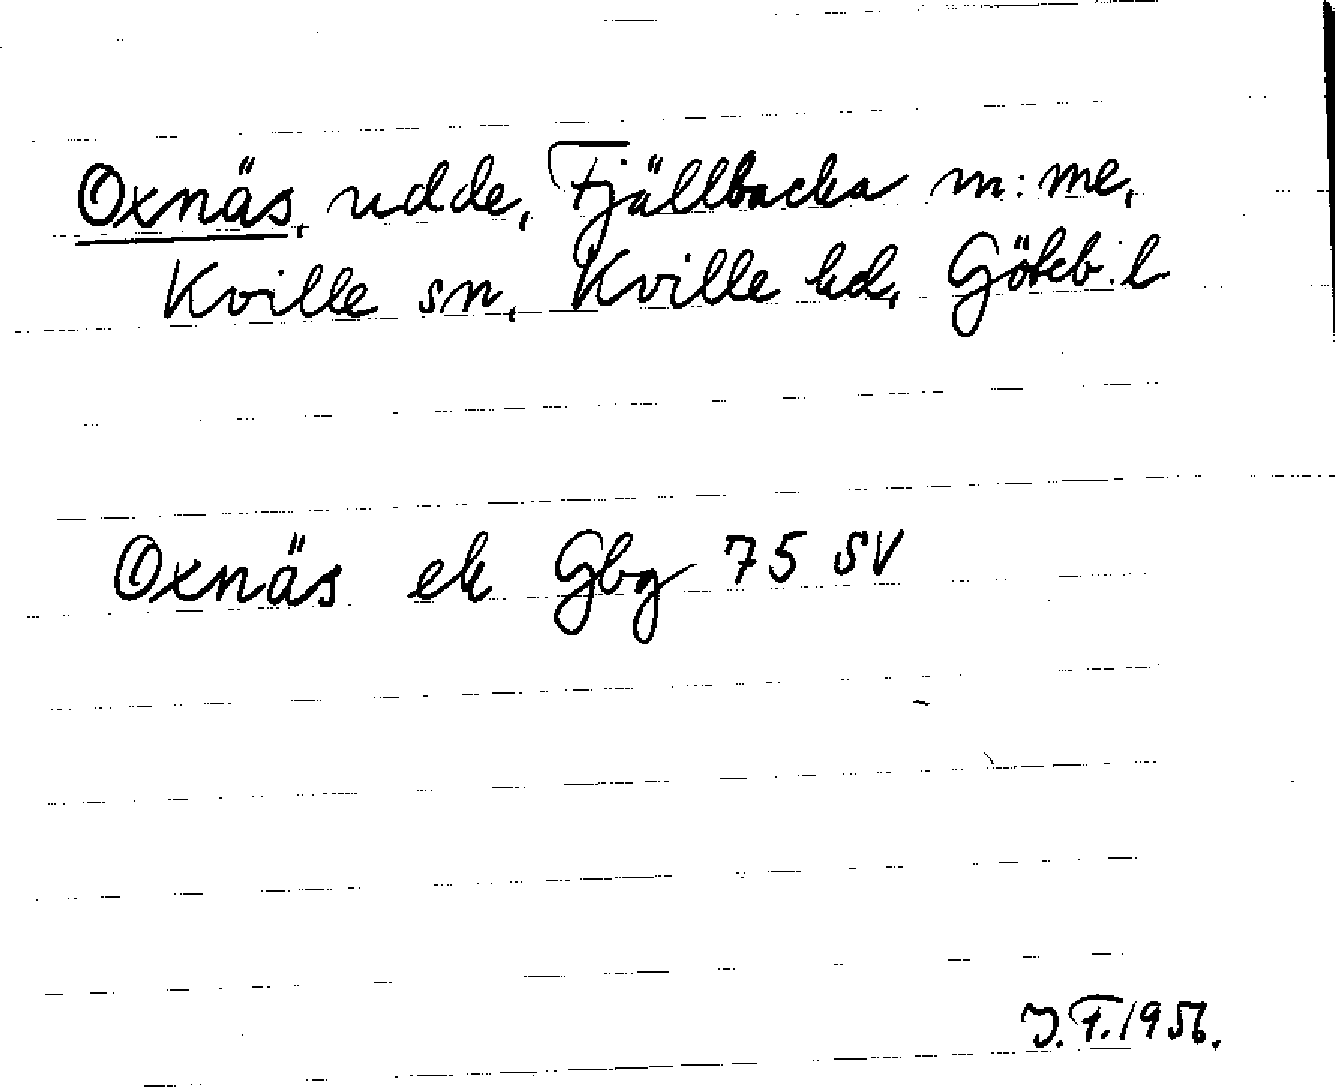 Oxnäs, udde, Fjällbacka m:me,
Kville sn, Kville hd, Göteb. l
Oxnäs ek Gbg 75 SV
J.F. 1956.